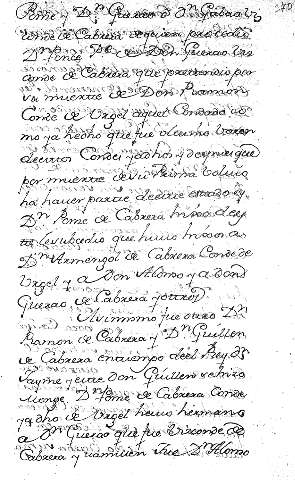 Ponce y Dn Guerao o Dn Guerau Viz
conde de Cabrera de quien procedio
Dn Ponce de Don Guerao Viz
conde de Cabrera que pretendio por
la muerte de Don Ramon
Conde de Urgel aquel Condado co
mo ya hecho que fue ultimo Varon
de estos Condes ya dhos y despues que
por muerte de su prima bolvio
ha haver parte de dicho estado el
Dn Ponce de Cabrera hixo de y
le subcedio que huvo hixos a
Dn Armengol de Cabrera Conde de
Urgel y a Don Alonso y a Don
Guerao de Cabrera y otros
Assimismo fue otro Dn
Ramon de Cabrera y Dn Guillen
de Cabrera en tiempo del Rey Dn
Jayme y este Don Guillen se hizo
Monge. Dn Ponce de Cabrera Conde
ya dho de Urgel huvo hermano
a Dn Guerao que fue Vizconde de
Cabrera y tambien fue Dn Alonso